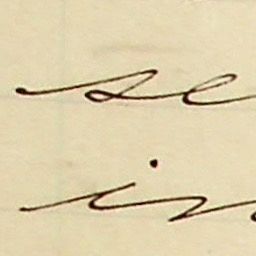 se
in